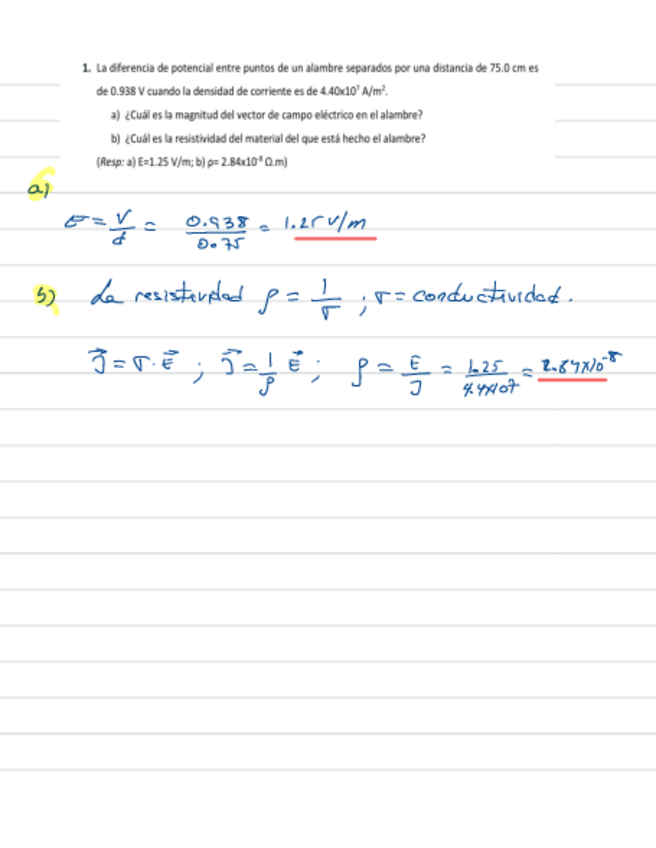 1. La diferencia de potencial entre puntos de un alambre separados por una distancia de 75.0 cm es
de 0.938 V cuando la densidad de corriente es de 4.40x10⁷ A/m².
a) ¿Cuál es la magnitud del vector de campo eléctrico en el alambre?
b) ¿Cuál es la resistividad del material del que está hecho el alambre?
(Resp: a) E=1.25 V/m; b) ρ= 2.84x10⁻⁸ Ω.m)
a)
E = V/d = 0.938/0.75 = 1.25 V/m
b) La resistividad ρ = 1/σ ; σ = conductividad.
J⃗ = σ·E⃗ ; J⃗ = 1/ρ E⃗ ; ρ = E/J = 1.25/4.4x10⁷ = 2.84x10⁻⁸